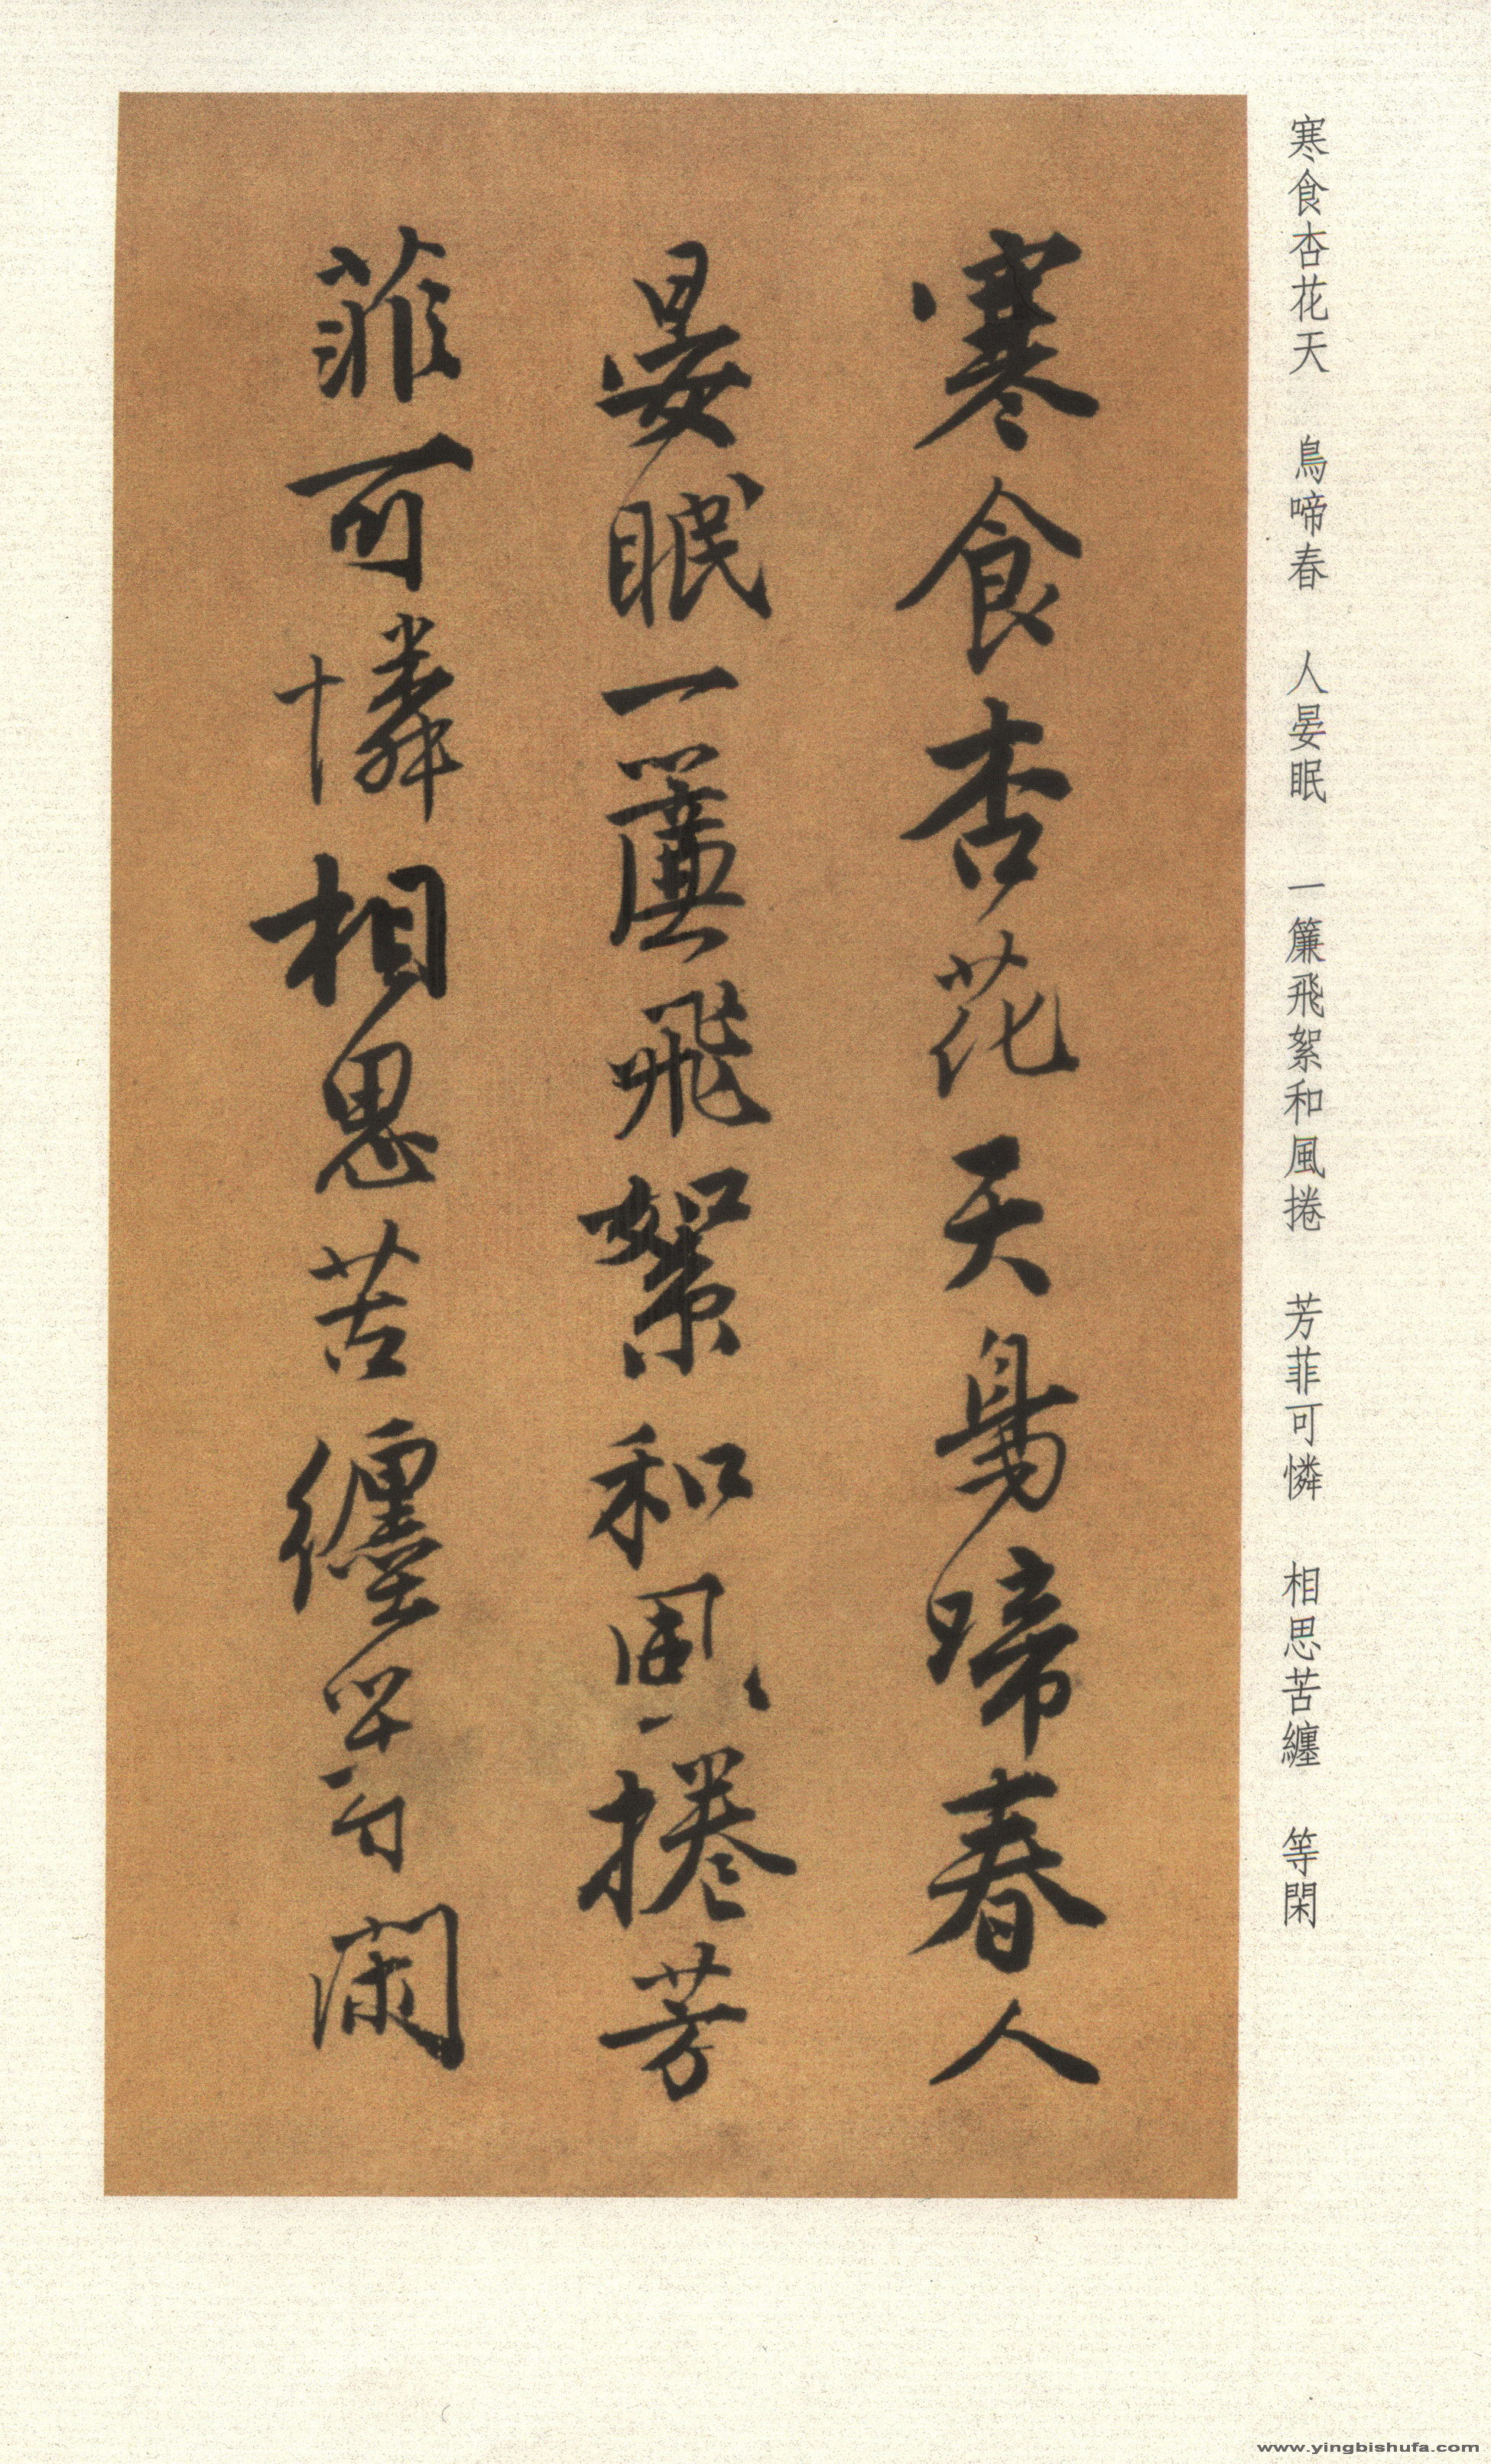 寒食杏花天　鳥啼春　人晏眠　一簾飛絮和風捲　芳菲可憐　相思苦纏　等閑
寒食杏花天鳥啼春人
晏眠一簾飛絮和風捲芳
菲可憐相思苦纏等閑
www.yingbishufa.com